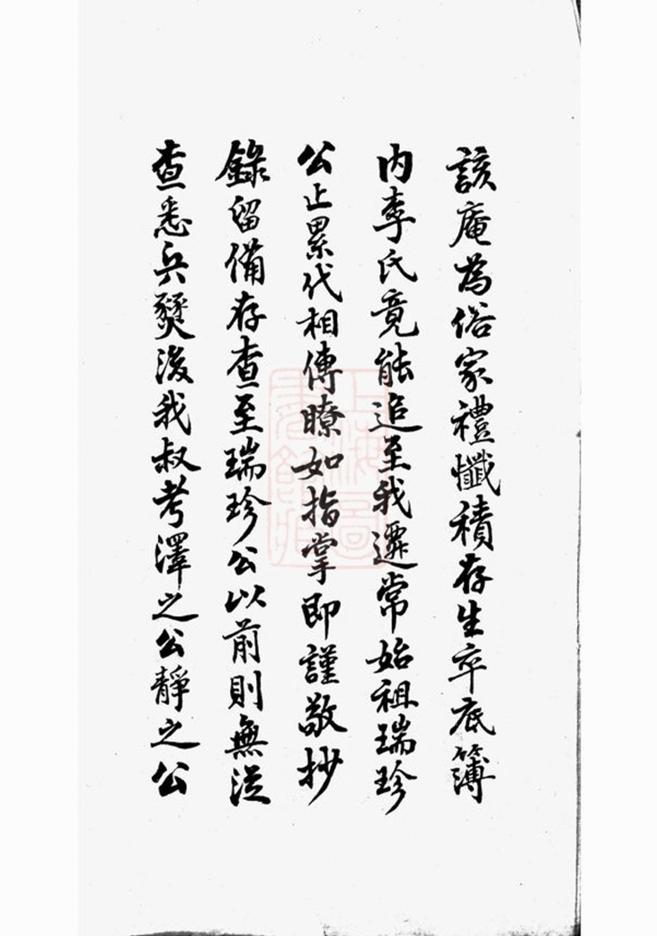 該庵為俗家禮懺積存生卒底簿
内李氏竟能追至我遷常始祖瑞珍
公止累代相傳瞭如指掌即謹敬抄
錄留備存查至瑞珍公以前則無從
查悉兵燹後我叔考澤之公靜之公
上海圖
書館藏